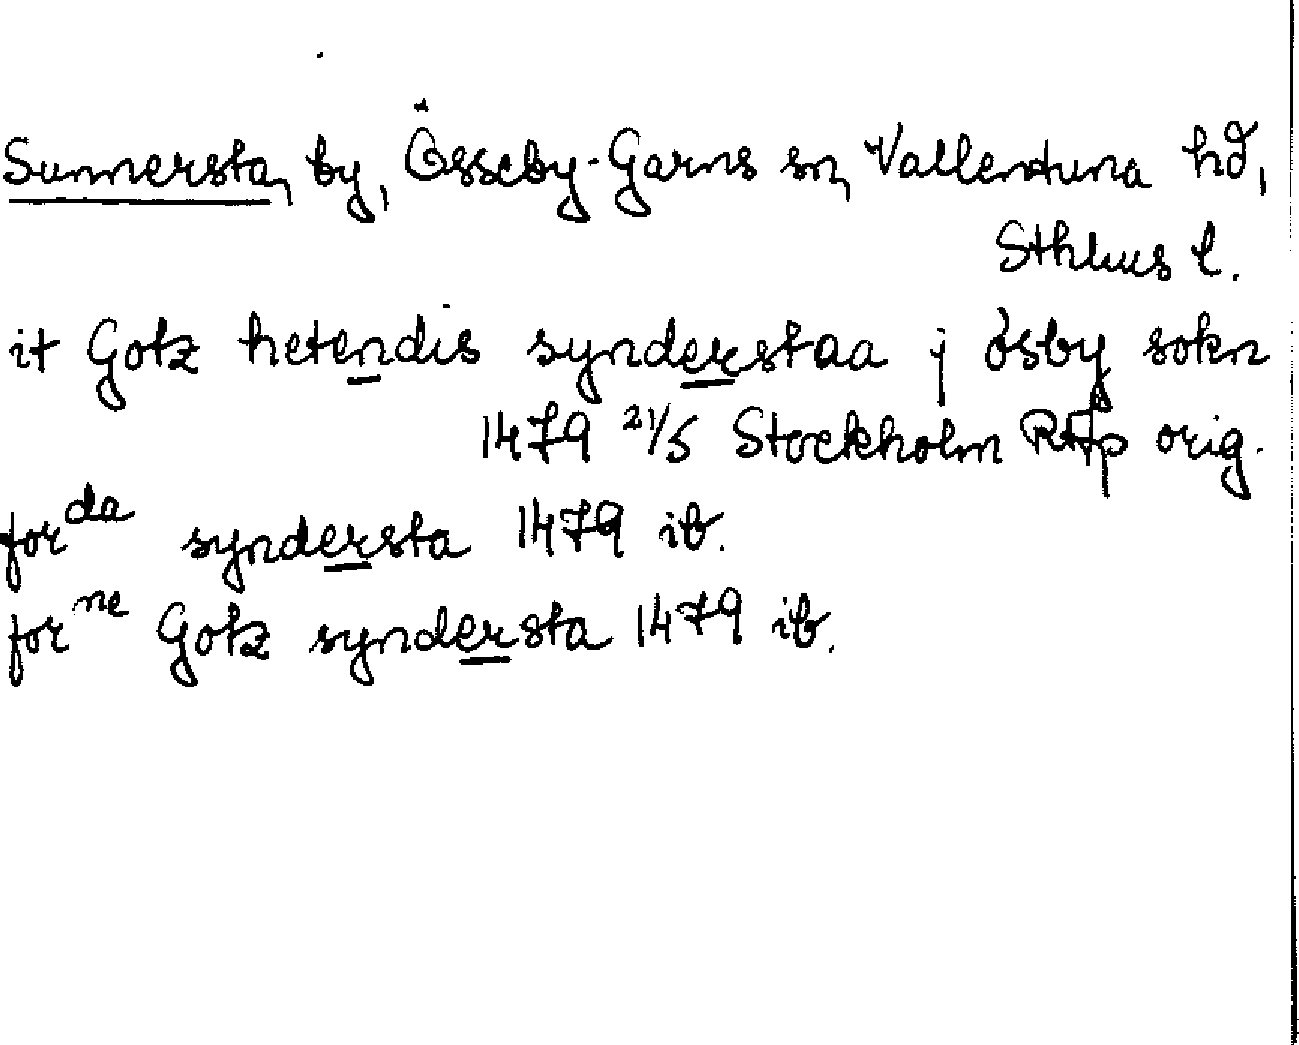 Sunnersta, by, Össeby-Garns sn, Vallentuna hd,
Sthlms l.
it Gotz hetendis synderstaa j ösby sokn
1479 21/5 Stockholm RAp orig.
for da syndersta 1479 ib.
for ne Gotz syndersta 1479 ib.